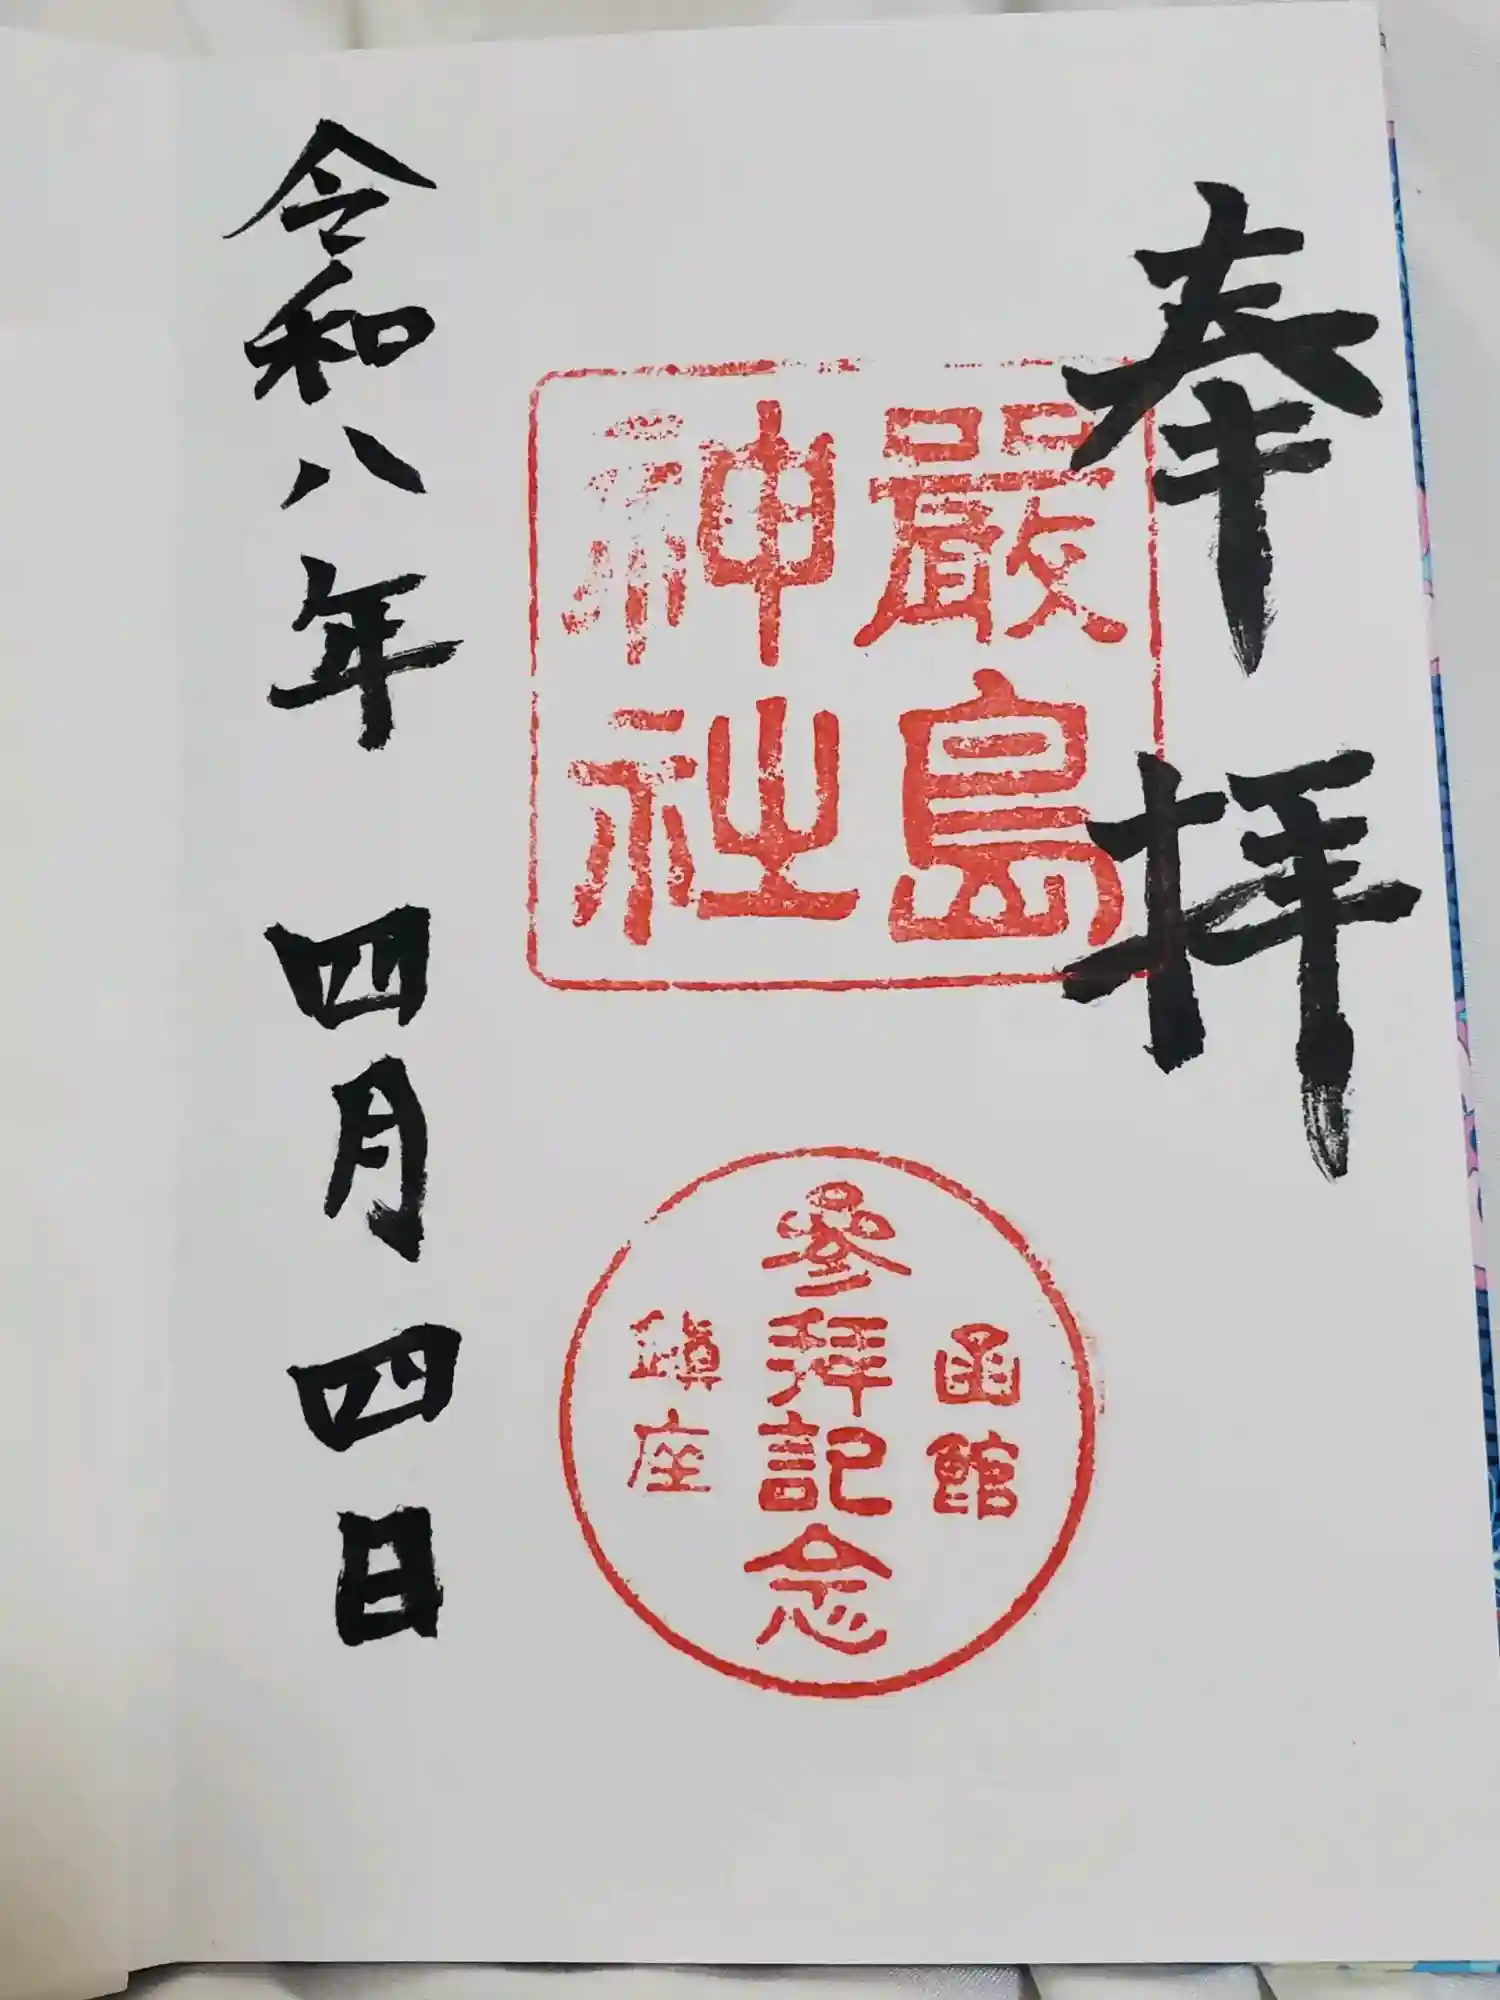 奉拝
嚴島
神社
函館
參拜記念
鎭座
令和八年 四月四日